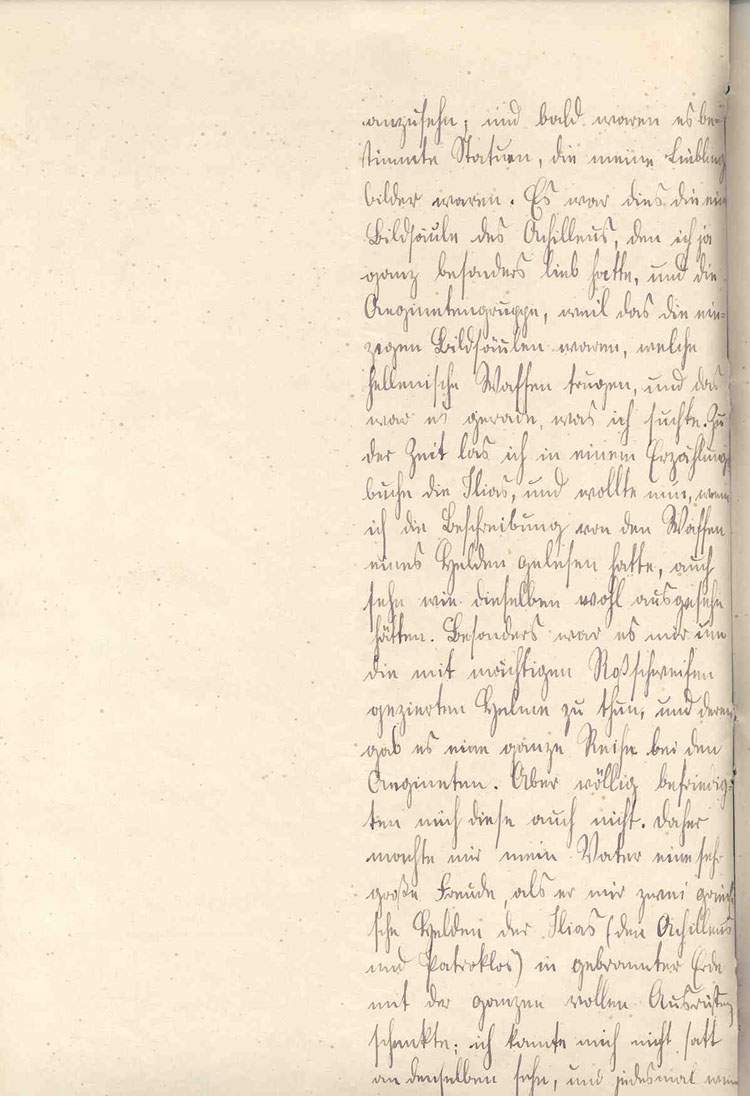 anzusehn; und bald waren es be-
stimmte Statuen, die meine Lieblings
bilder waren. Es war dies die eine
Bildsäule des Achilleus, den ich ja
ganz besonders lieb hatte, und die
Aeginetengruppe, weil das die ein=
zigen Bildsäulen waren, welche
hellenische Waffen trugen, und das
war es gerade, was ich suchte. Zu
der Zeit las ich in einem Erzählungs
buche die Ilias, und wollte nun, wenn
ich die Beschreibung von den Waffen
eines Helden gelesen hatte, auch
sehn wie dieselben wohl ausgesehn
hätten. Besonders war es mir um
die mit mächtigen Roßschweifen
gezierten Helme zu thun, und deren
gab es eine ganze Reihe bei den
Aegineten. Aber völlig befriedig=
ten mich diese auch nicht. Daher
machte mir mein Vater eine sehr
große Freude, als er mir zwei griechi
sche Helden der Ilias (den Achilleus
und Patroklos) in gebrannter Erde
mit der ganzen vollen Ausrüstung
schenkte; ich konnte mich nicht satt
an denselben sehn, und jedesmal wenn